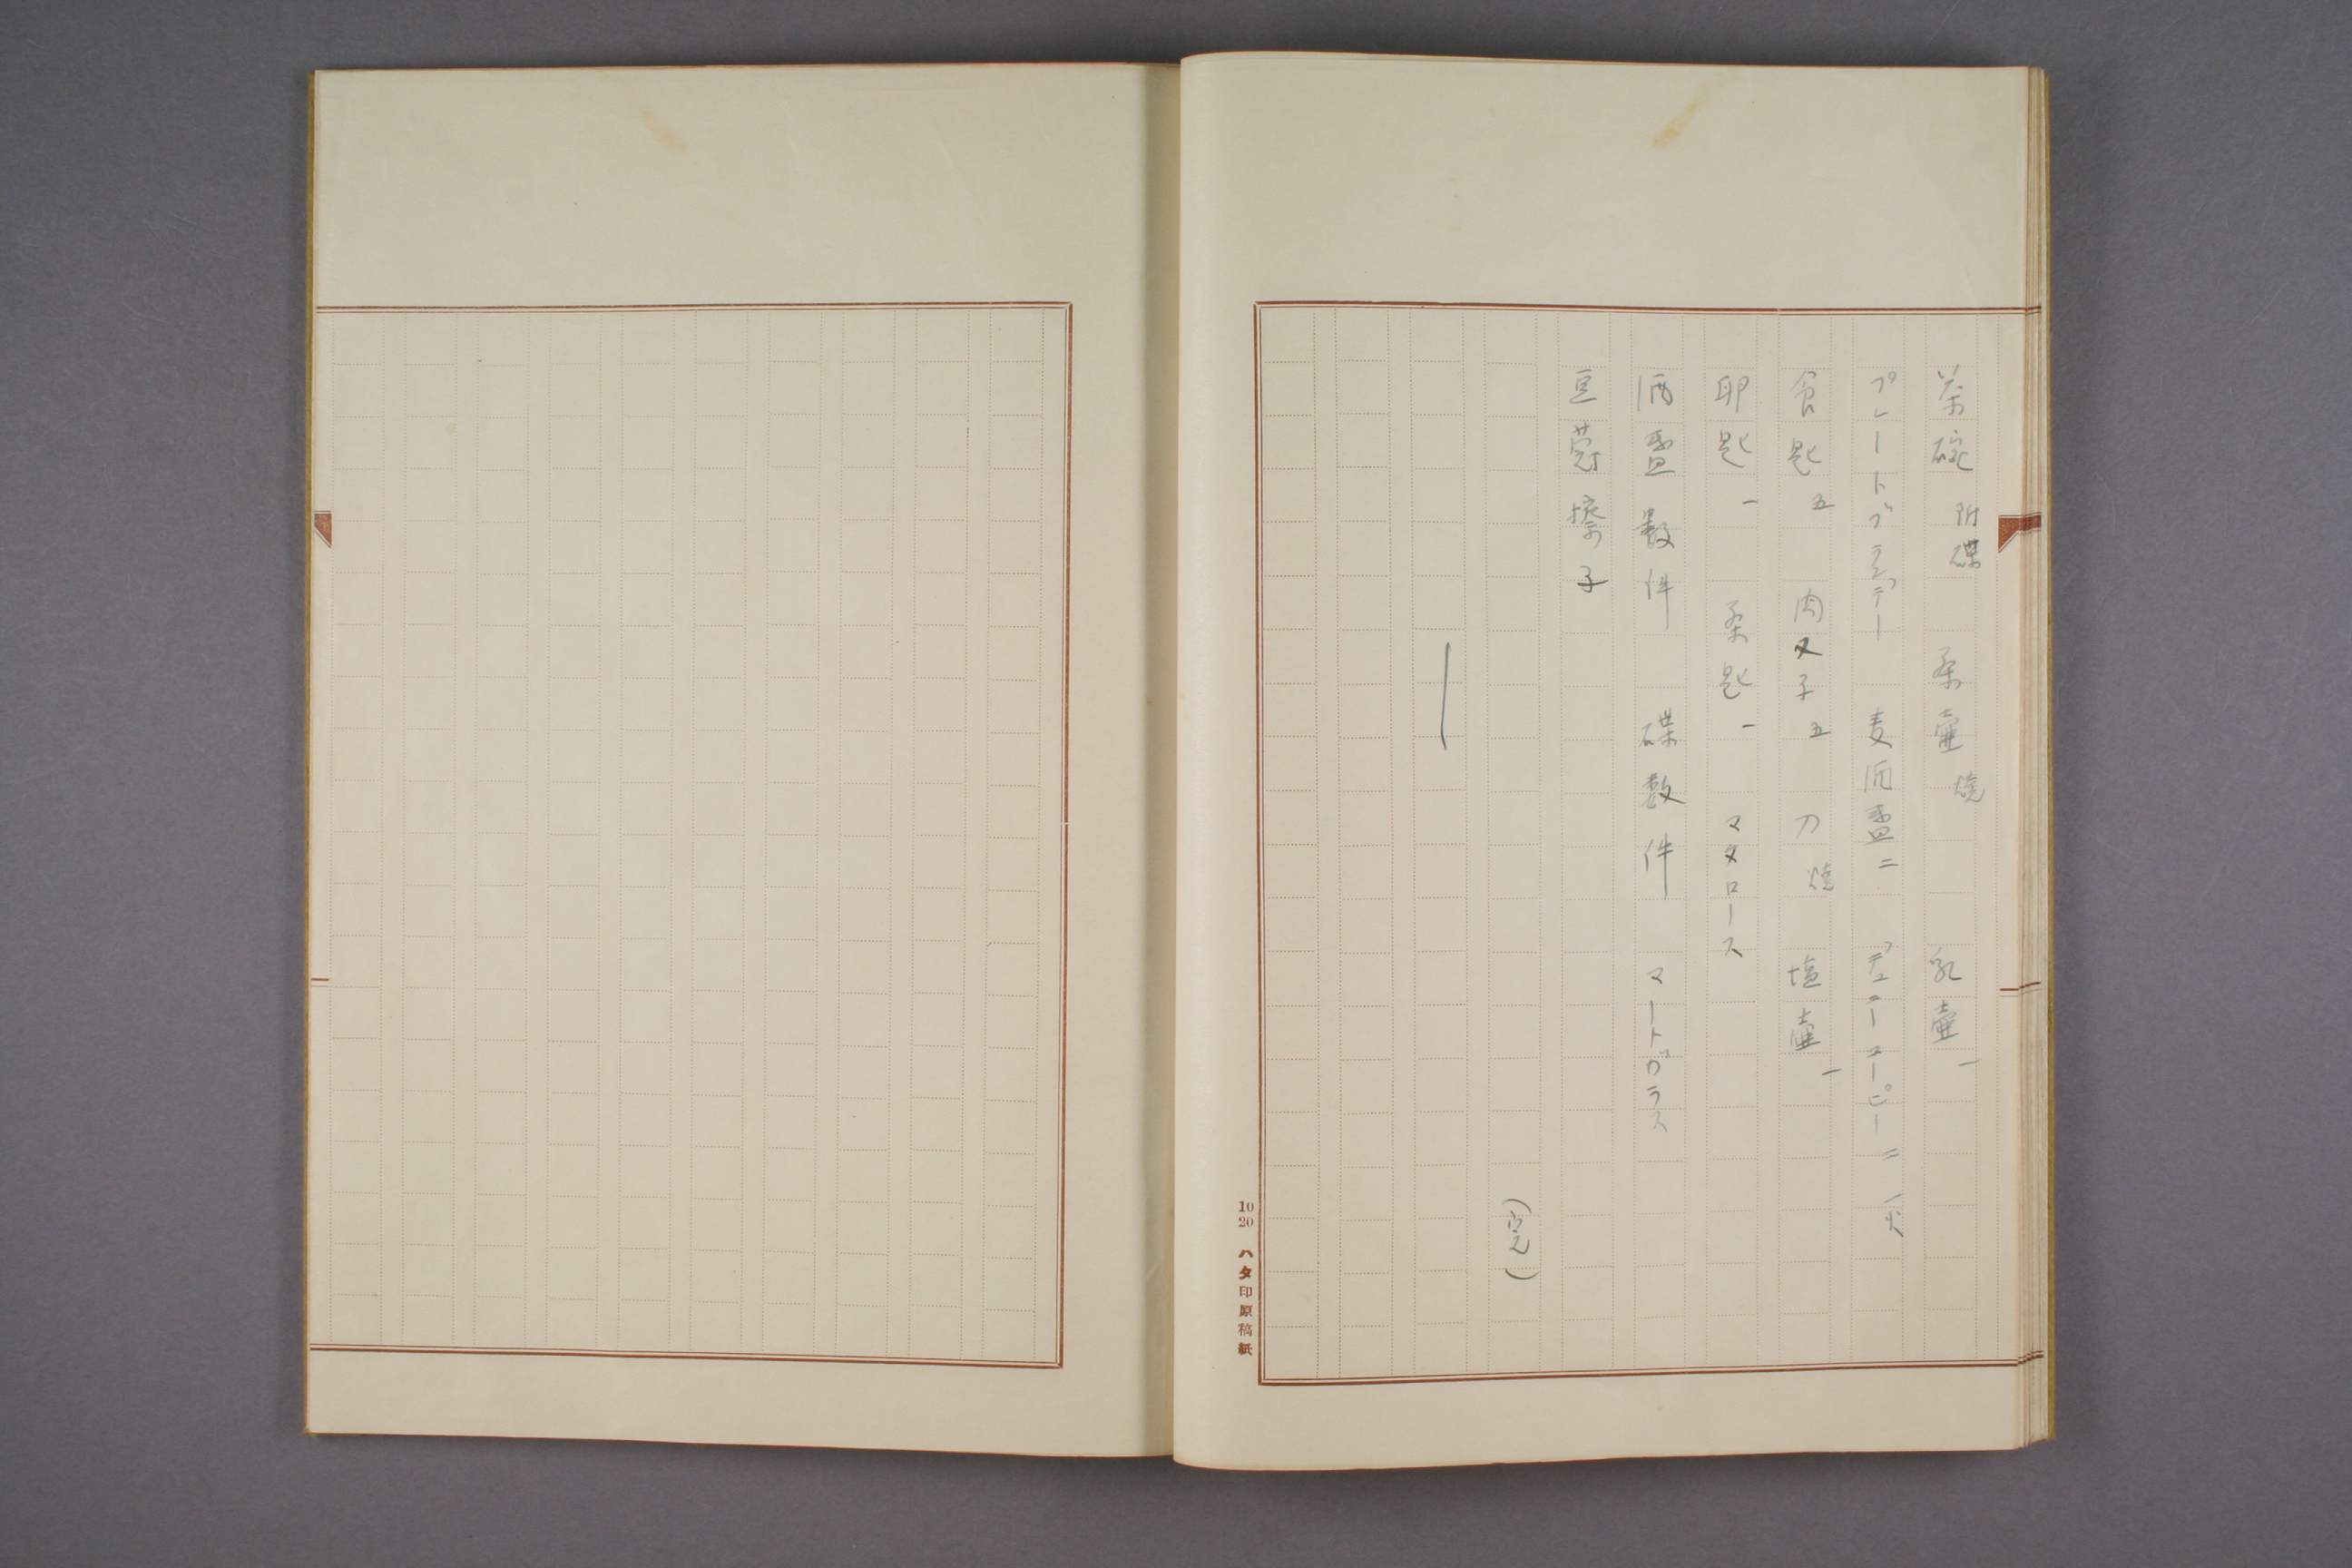 茶碗 附碟 茶壷 焼 乳壷 一
プレートブランデー 麦酒盃二 コーピー 二 一欠
食匙 五 肉叉子 五 刀 焼 塩壷 一
卵匙 一 茶匙 一 マタロース
酒盃数件 碟数件 マートガラス
豆蔲擦子
(完)
10 20 ハタ印原稿紙